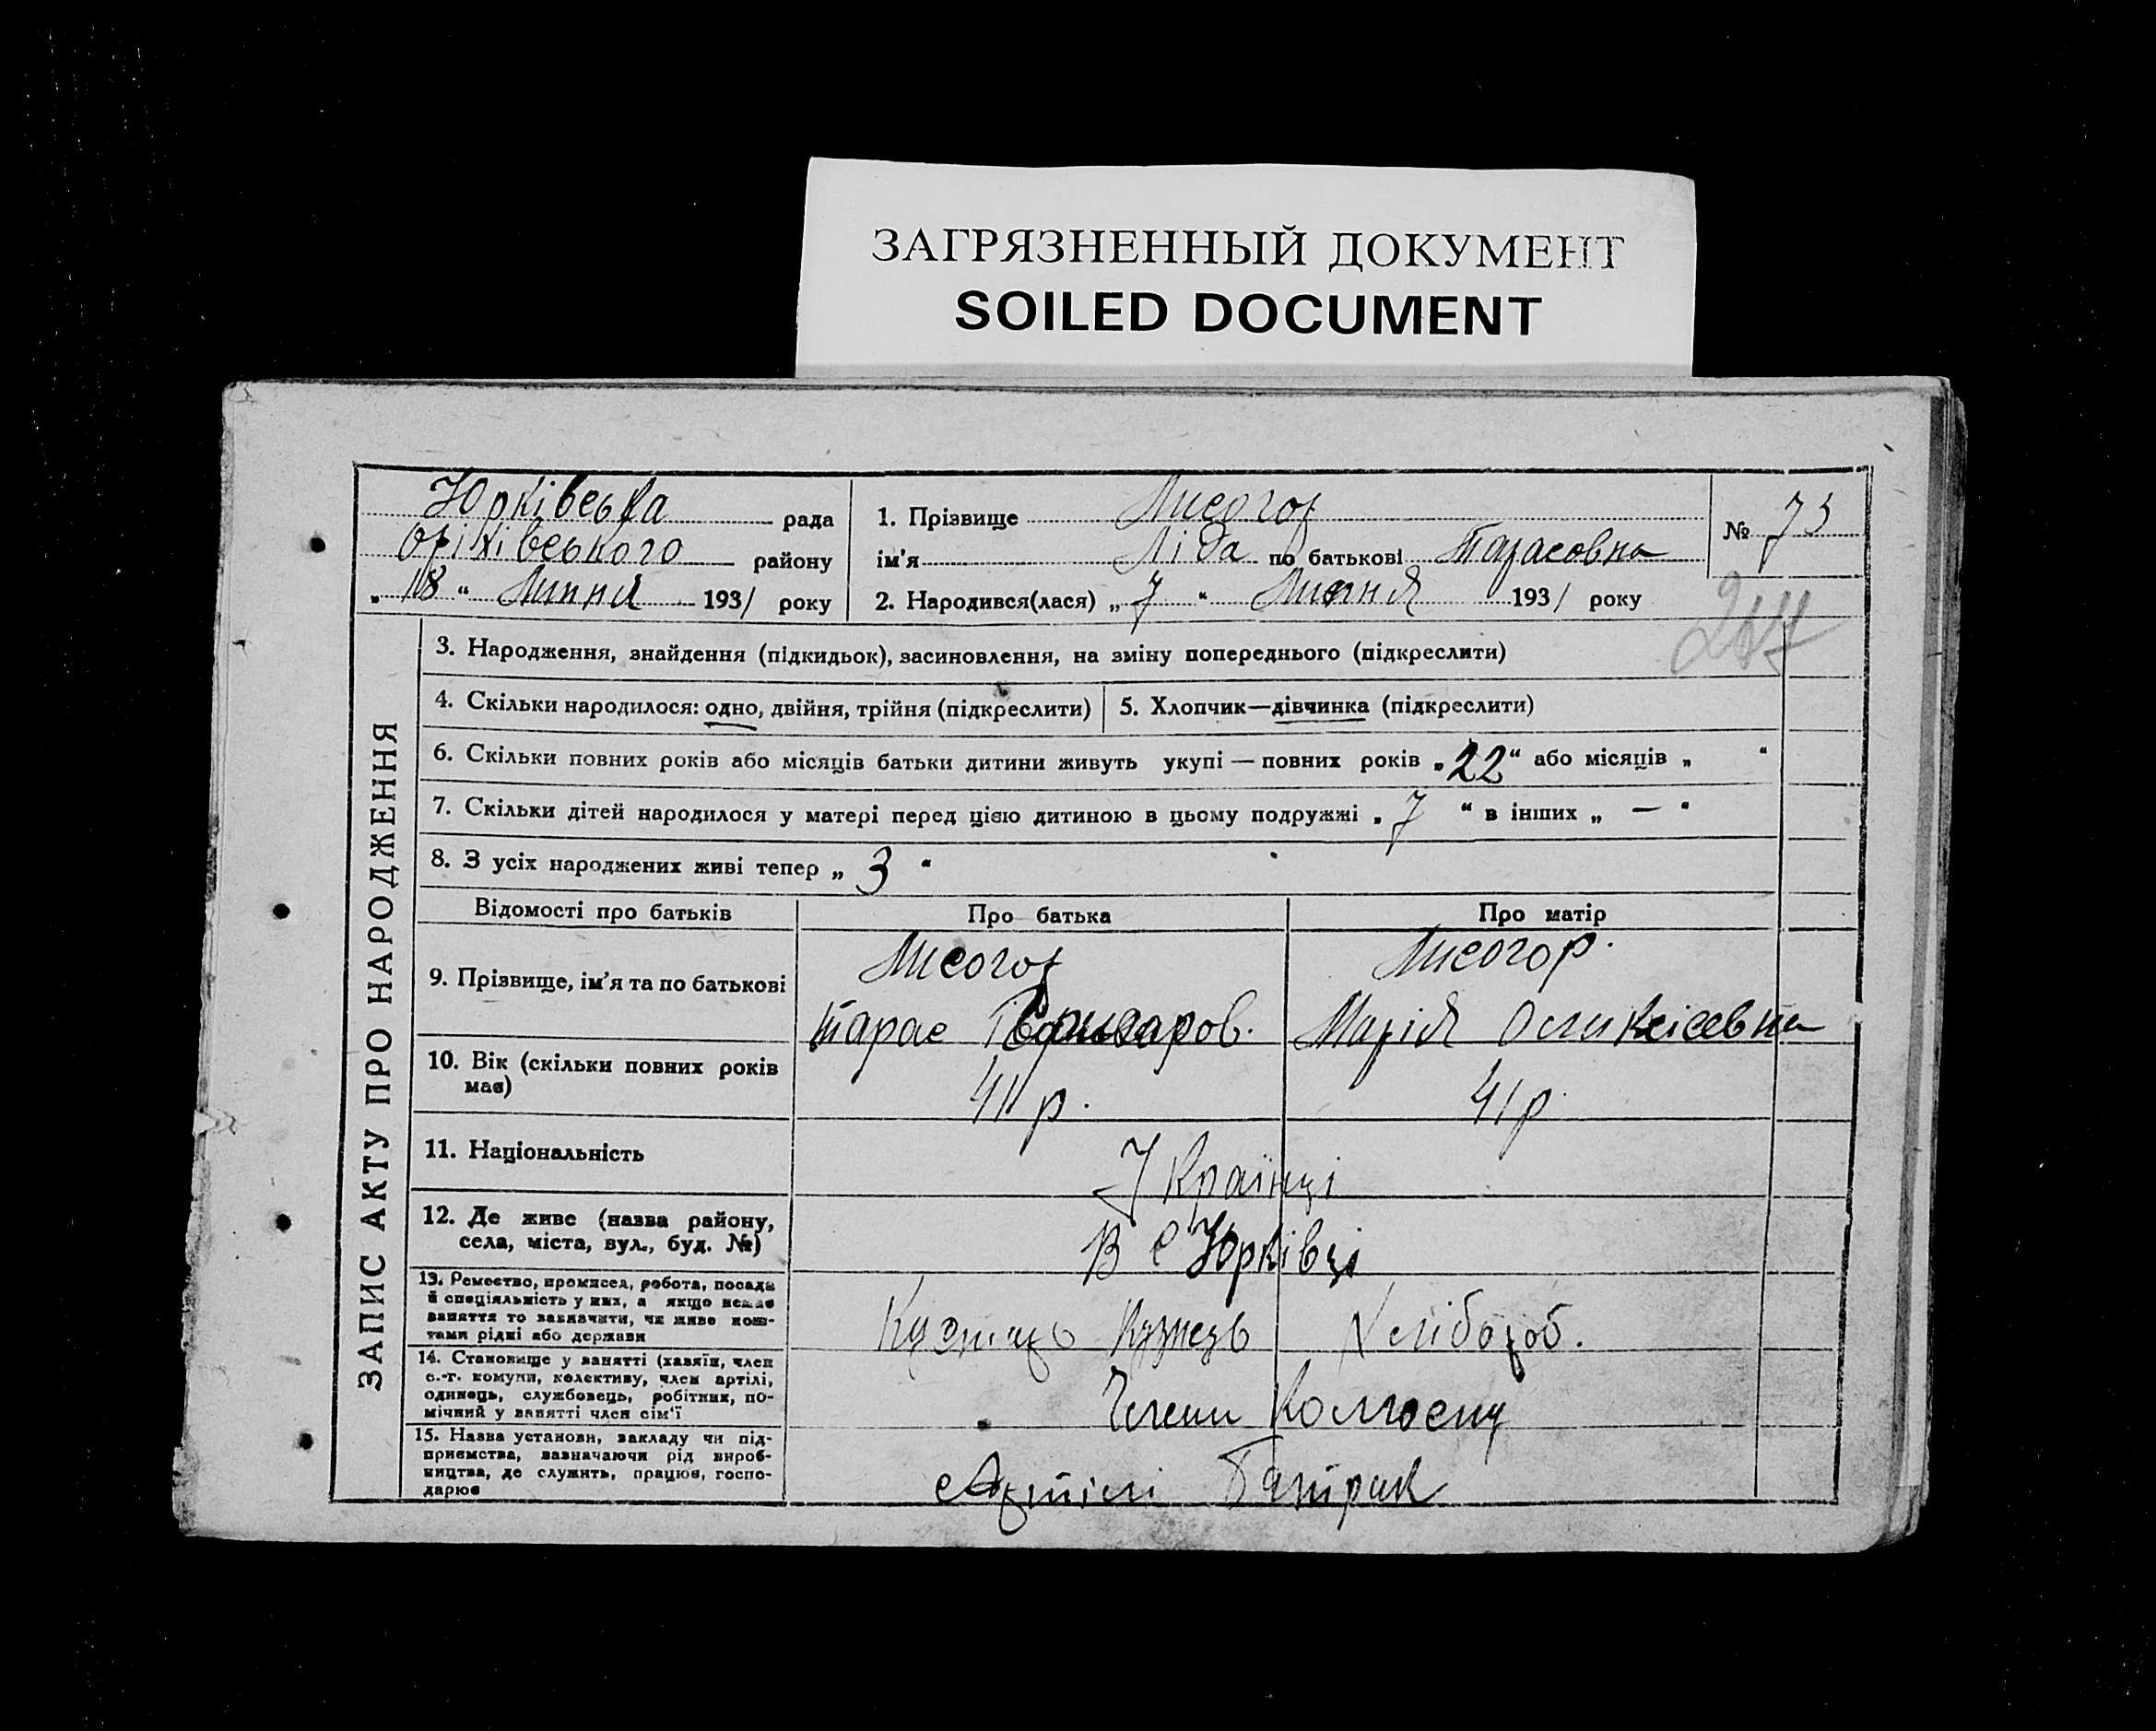 ЗАГРЯЗНЕННЫЙ ДОКУМЕНТ
SOILED DOCUMENT
Юрківська рада
Оріхівського району
„18“ Липня 1931 року
1. Прізвище Лисогор
ім'я Ліда по батькові Тарасовна
2. Народився(лася) „7“ Липня 1931 року
№ 73
217
ЗАПИС АКТУ ПРО НАРОДЖЕННЯ
3. Народження, знайдення (підкидьок), засиновлення, на зміну попереднього (підкреслити)
4. Скільки народилося: одно, двійня, трійня (підкреслити)
5. Хлопчик—дівчинка (підкреслити)
6. Скільки повних років або місяців батьки дитини живуть укупі — повних років „22“ або місяців „ “
7. Скільки дітей народилося у матері перед цією дитиною в цьому подружжі „7“ в інших „—“
8. З усіх народжених живі тепер „3“
Відомості про батьків
Про батька
Про матір
9. Прізвище, ім'я та по батькові
Лисогор
Тарас
Лисогор.
Марія Оликсісевна
10. Вік (скільки повних років
має)
41 р.
41 р.
11. Національність
Українці
12. Де живе (назва району,
села, міста, вул., буд. №)
В с Юрківці
13. Ремество, промисел, робота, посада
й спеціяльність у них, а якщо немає
заняття то зазначити, чи живе кош-
тами рідні або держави
Кузнець
Хлібороб.
14. Становище у занятті (хазяїн, член
с.-г. комуни, колективу, член артілі,
одинець, службовець, робітник, по-
мічний у занятті член сім'ї
Члени Колгоспу
15. Назва установи, закладу чи під-
приємства, зазначаючи рід вироб-
ництва, де служить, працює, госпо-
дарює
Артілі Батрак